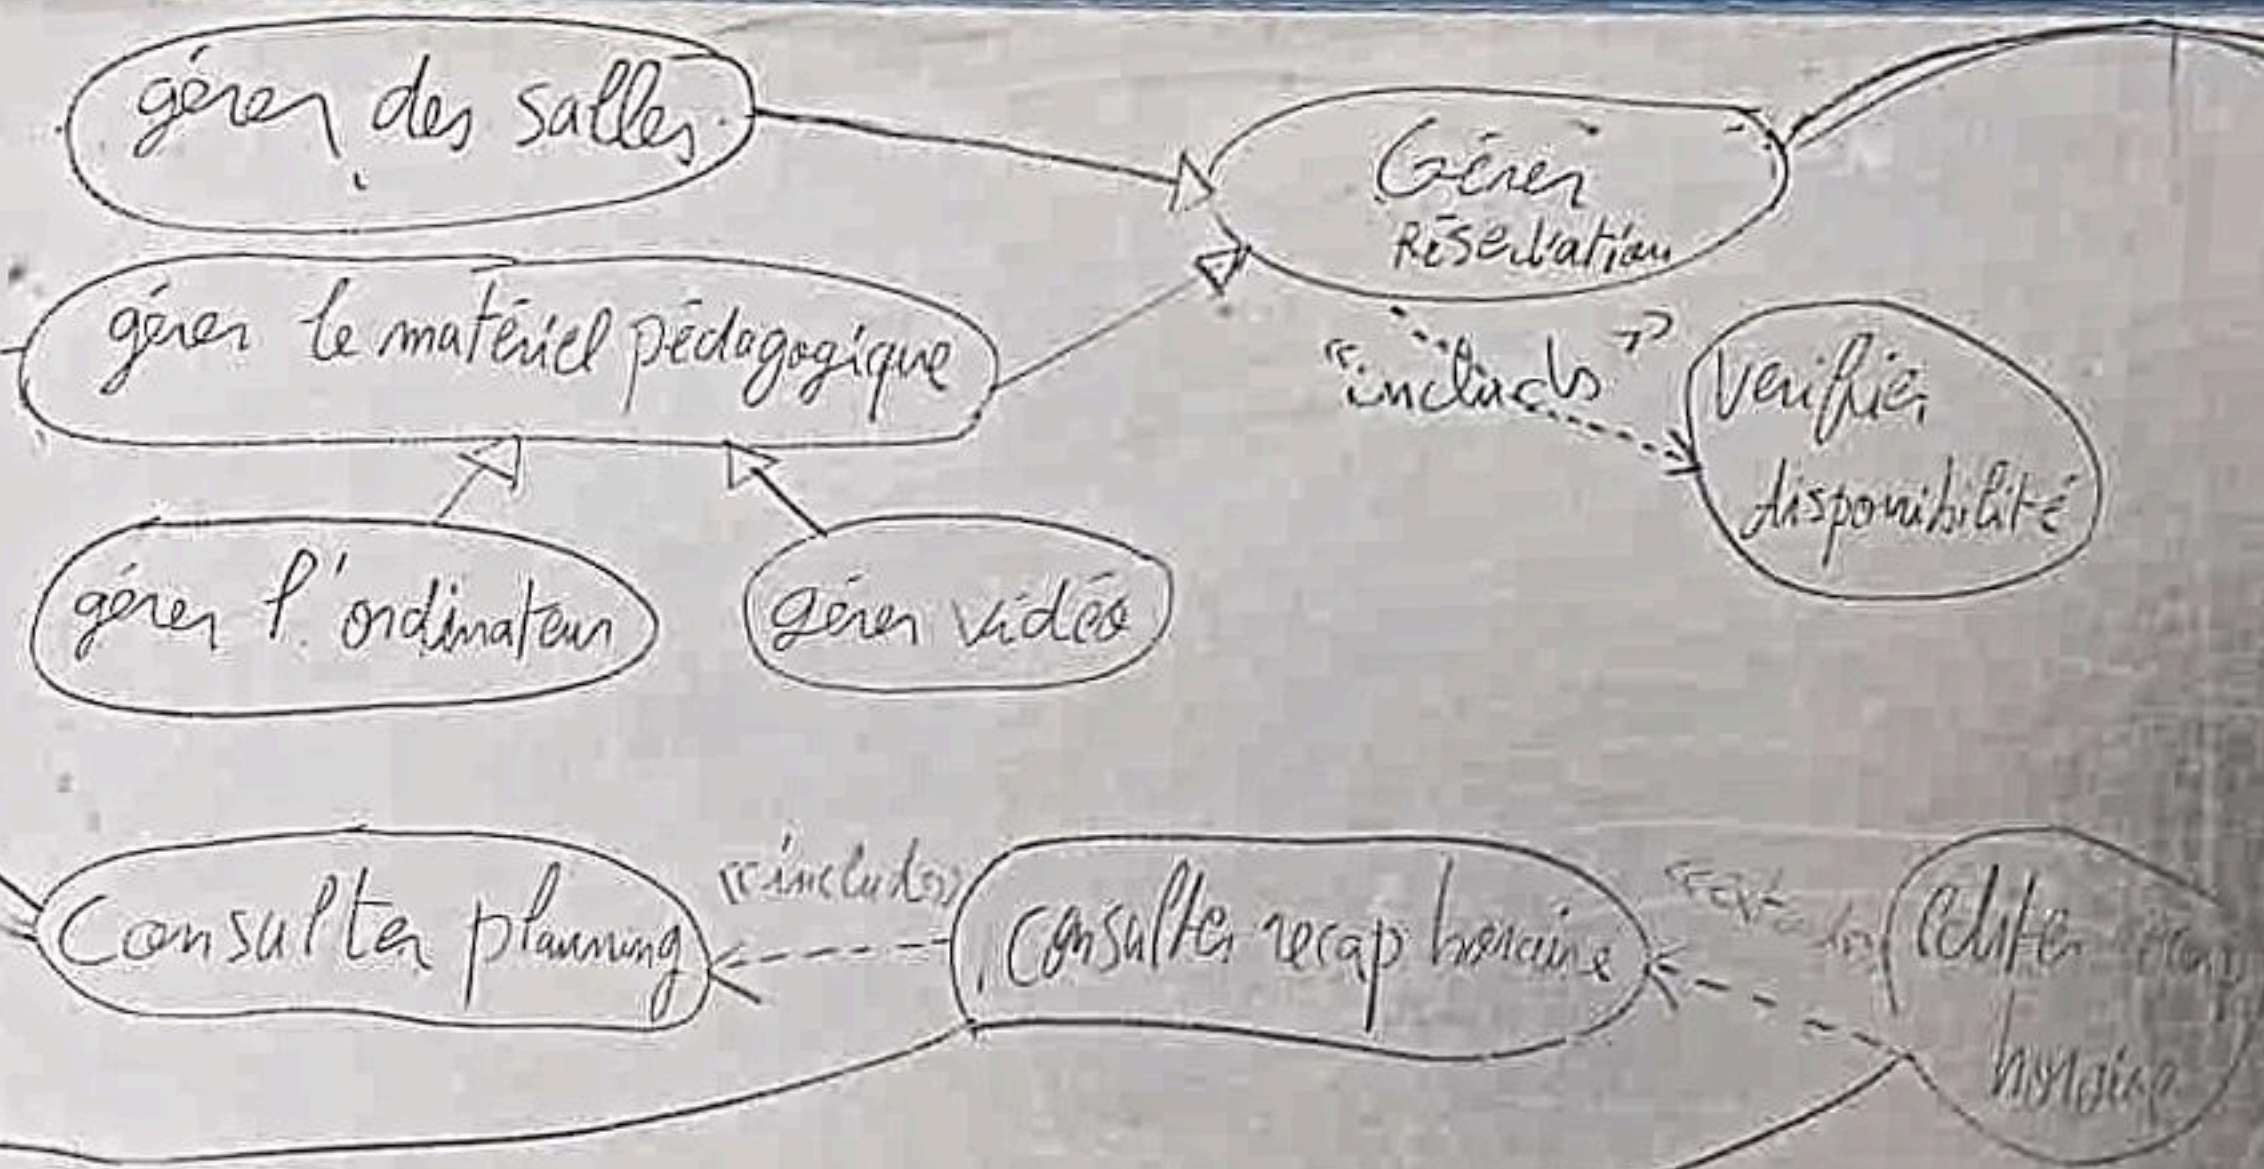 gérer des salles
Gérer
Réservation
gérer le matériel pédagogique
"include"
Verifier
disponibilité
gérer l'ordinateur
gérer vidéo
Consulter planning
"include"
consulter recap horaire
editer recap
horaire